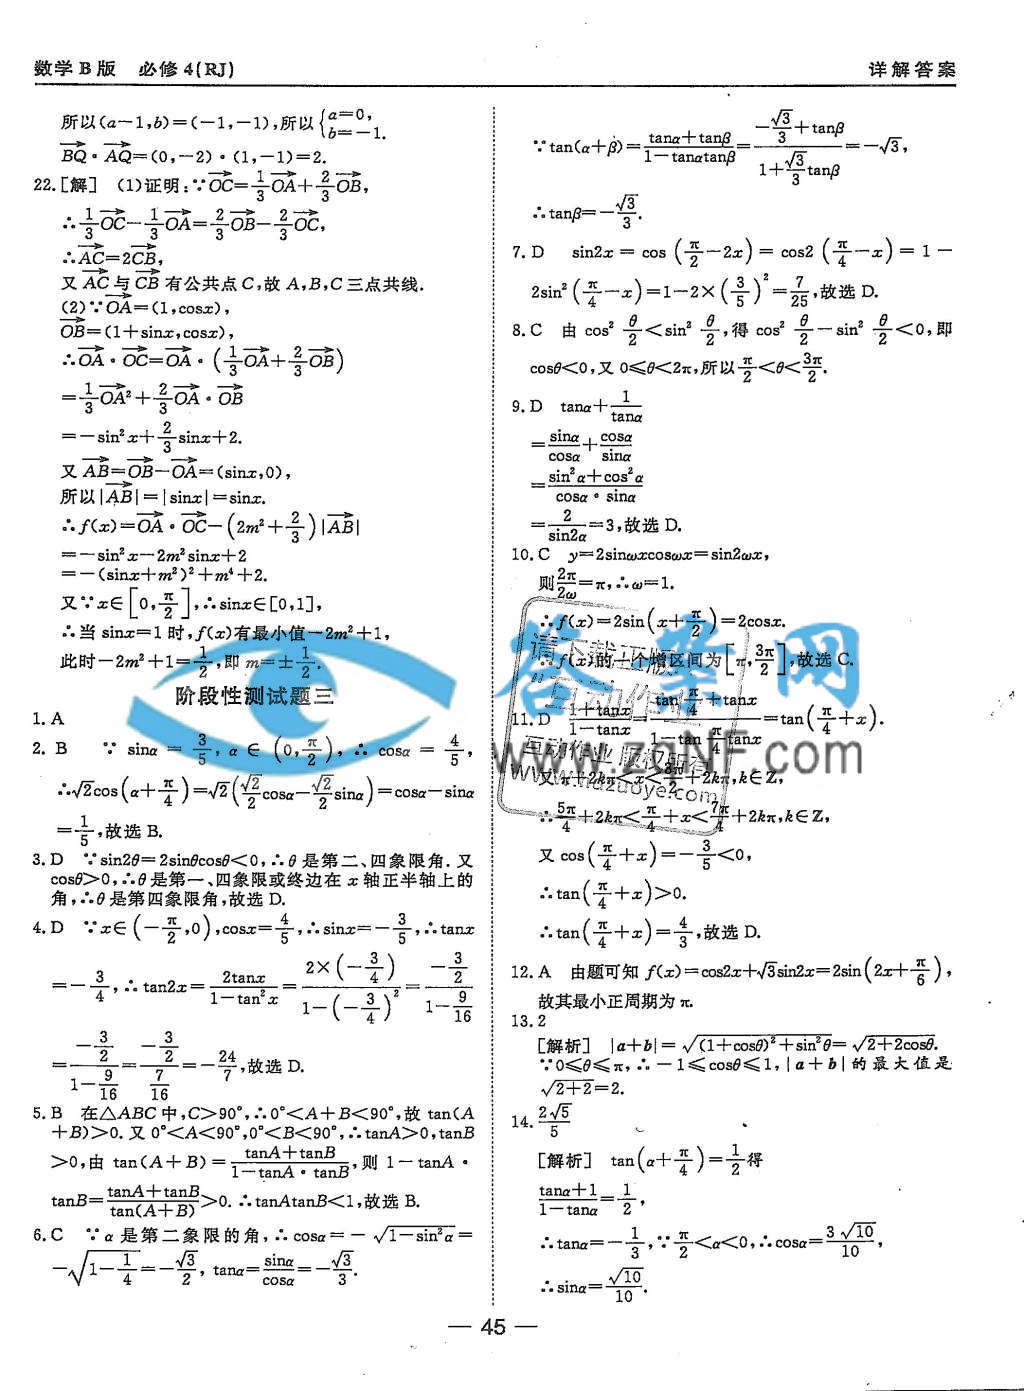 数学 B 版　必修 4(RJ)　详解答案
所以(a－1,b)＝(－1,－1),所以{a＝0, b＝－1.
BQ→·AQ→＝(0,－2)·(1,－1)＝2.
22.[解]　(1)证明:∵OC→＝1/3OA→＋2/3OB→,
∴1/3OC→－1/3OA→＝2/3OB→－2/3OC→,
∴AC→＝2CB→,
又 AC→与 CB→有公共点 C,故 A,B,C 三点共线.
(2)∵OA→＝(1,cosx),
OB→＝(1＋sinx,cosx),
∴OA→·OC→＝OA→·(1/3OA→＋2/3OB→)
＝1/3OA→²＋2/3OA→·OB→
＝－sin²x＋2/3sinx＋2.
又 AB→＝OB→－OA→＝(sinx,0),
所以|AB→|＝|sinx|＝sinx.
∴f(x)＝OA→·OC→－(2m²＋2/3)|AB→|
＝－sin²x－2m²sinx＋2
＝－(sinx＋m²)²＋m⁴＋2.
又∵x∈[0,π/2],∴sinx∈[0,1],
∴当 sinx＝1 时,f(x)有最小值－2m²＋1,
此时－2m²＋1＝1/2,即 m＝±1/2.
阶段性测试题三
1. A
2. B　∵ sinα ＝ 3/5, α ∈ (0,π/2), ∴ cosα ＝ 4/5,
∴√2cos(α＋π/4)＝√2(√2/2cosα－√2/2sinα)＝cosα－sinα
＝1/5,故选 B.
3. D　∵sin2θ＝2sinθcosθ＜0,∴θ 是第二、四象限角.又
cosθ＞0,∴θ 是第一、四象限或终边在 x 轴正半轴上的
角,∴θ 是第四象限角,故选 D.
4. D　∵x∈(－π/2,0),cosx＝4/5,∴sinx＝－3/5,∴tanx
＝－3/4,∴tan2x＝2tanx/(1－tan²x)＝2×(－3/4)/(1－(－3/4)²)＝(－3/2)/(1－9/16)
＝(－3/2)/(1－9/16)＝(－3/2)/(7/16)＝－24/7,故选 D.
5. B　在△ABC 中,C＞90°,∴0°＜A＋B＜90°,故 tan(A
＋B)＞0.又 0°＜A＜90°,0°＜B＜90°,∴tanA＞0,tanB
＞0,由 tan(A＋B)＝(tanA＋tanB)/(1－tanA·tanB),则 1－tanA·
tanB＝(tanA＋tanB)/tan(A＋B)＞0.∴tanAtanB＜1,故选 B.
6. C　∵α 是第二象限的角,∴cosα＝－√(1－sin²α)＝
－√(1－1/4)＝－√3/2, tanα＝sinα/cosα＝－√3/3.
∵tan(α＋β)＝(tanα＋tanβ)/(1－tanαtanβ)＝(－√3/3＋tanβ)/(1＋√3/3tanβ)＝－√3,
∴tanβ＝－√3/3.
7. D　sin2x＝cos(π/2－2x)＝cos2(π/4－x)＝1－
2sin²(π/4－x)＝1－2×(3/5)²＝7/25,故选 D.
8. C　由 cos²θ/2＜sin²θ/2,得 cos²θ/2－sin²θ/2＜0,即
cosθ＜0,又 0⩽θ＜2π,所以π/2＜θ＜3π/2.
9. D　tanα＋1/tanα
＝sinα/cosα＋cosα/sinα
＝(sin²α＋cos²α)/(cosα·sinα)
＝2/sin2α＝3,故选 D.
10. C　y＝2sinωxcosωx＝sin2ωx,
则2π/2ω＝π,∴ω＝1.
∴f(x)＝2sin(x＋π/2)＝2cosx.
∴f(x)的一个增区间为[π,3π/2],故选 C.
11. D　(1＋tanx)/(1－tanx)＝(tanπ/4＋tanx)/(1－tanπ/4tanx)＝tan(π/4＋x).
又π＋2kπ＜x＜3π/2＋2kπ,k∈Z,
∴5π/4＋2kπ＜π/4＋x＜7π/4＋2kπ,k∈Z,
又 cos(π/4＋x)＝－3/5＜0,
∴tan(π/4＋x)＞0.
∴tan(π/4＋x)＝4/3,故选 D.
12. A　由题可知 f(x)＝cos2x＋√3sin2x＝2sin(2x＋π/6),
故其最小正周期为 π.
13. 2
[解析]　|a＋b|＝√((1＋cosθ)²＋sin²θ)＝√(2＋2cosθ).
∵0⩽θ⩽π,∴－1⩽cosθ⩽1,|a＋b|的最大值是
√(2＋2)＝2.
14. 2√5/5
[解析]　tan(α＋π/4)＝1/2得
(tanα＋1)/(1－tanα)＝1/2,
∴tanα＝－1/3,∵π/2＜α＜0,∴cosα＝3√10/10,
∴sinα＝√10/10.
— 45 —
答案网
www.zqNF.com
请下载正版
互动作业 版权所有
www.hdzuoye.com